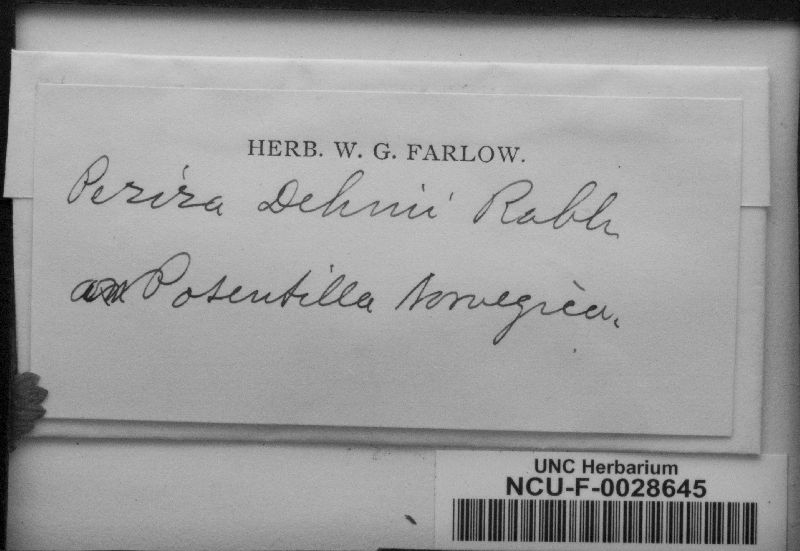 HERB. W. G. FARLOW.
Peziza Dehnii Rabh
on Potentilla Norvegica.
UNC Herbarium
NCU-F-0028645